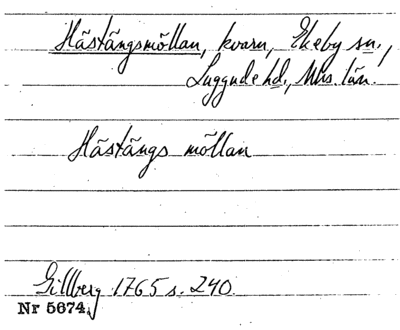 Hästängsmöllan, kvarn, Ekeby sn.,
Luggude hd., Mhs. län.
Hästängs möllan
Gillberg 1765 s. 240.
Nr 5674.